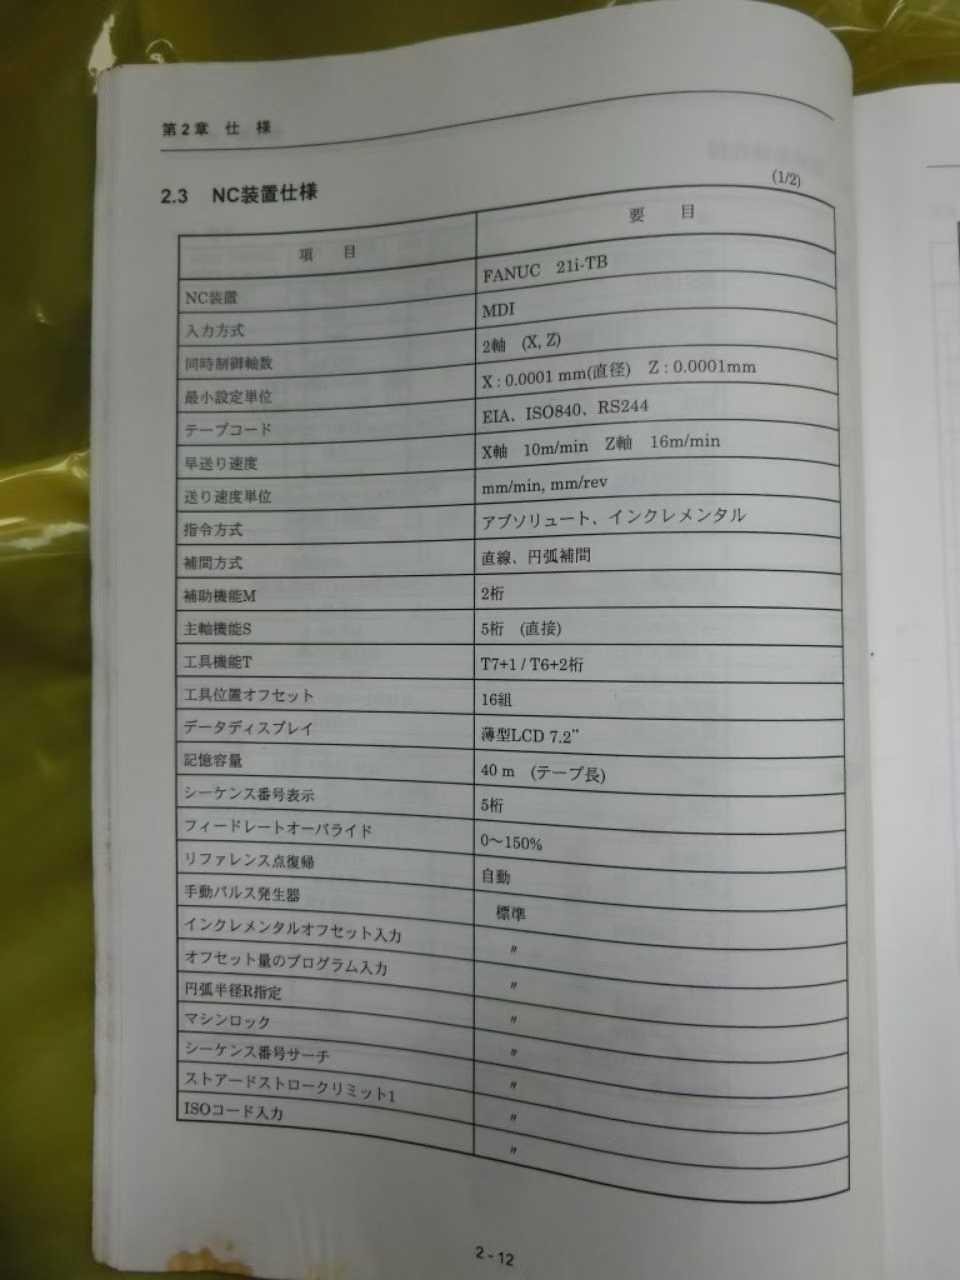 第2章 仕 様
2.3 NC装置仕様
(1/2)
項 目 要 目
NC装置 FANUC 21i-TB
入力方式 MDI
同時制御軸数 2軸 (X, Z)
最小設定単位 X : 0.0001 mm(直径) Z : 0.0001mm
テープコード EIA、ISO840、RS244
早送り速度 X軸 10m/min Z軸 16m/min
送り速度単位 mm/min, mm/rev
指令方式 アブソリュート、インクレメンタル
補間方式 直線、円弧補間
補助機能M 2桁
主軸機能S 5桁 (直接)
工具機能T T7+1 / T6+2桁
工具位置オフセット 16組
データディスプレイ 薄型LCD 7.2”
記憶容量 40 m (テープ長)
シーケンス番号表示 5桁
フィードレートオーバライド 0～150%
リファレンス点復帰 自動
手動パルス発生器 標準
インクレメンタルオフセット入力 〃
オフセット量のプログラム入力 〃
円弧半径R指定 〃
マシンロック 〃
シーケンス番号サーチ 〃
ストアードストロークリミット1 〃
ISOコード入力 〃
2 - 12